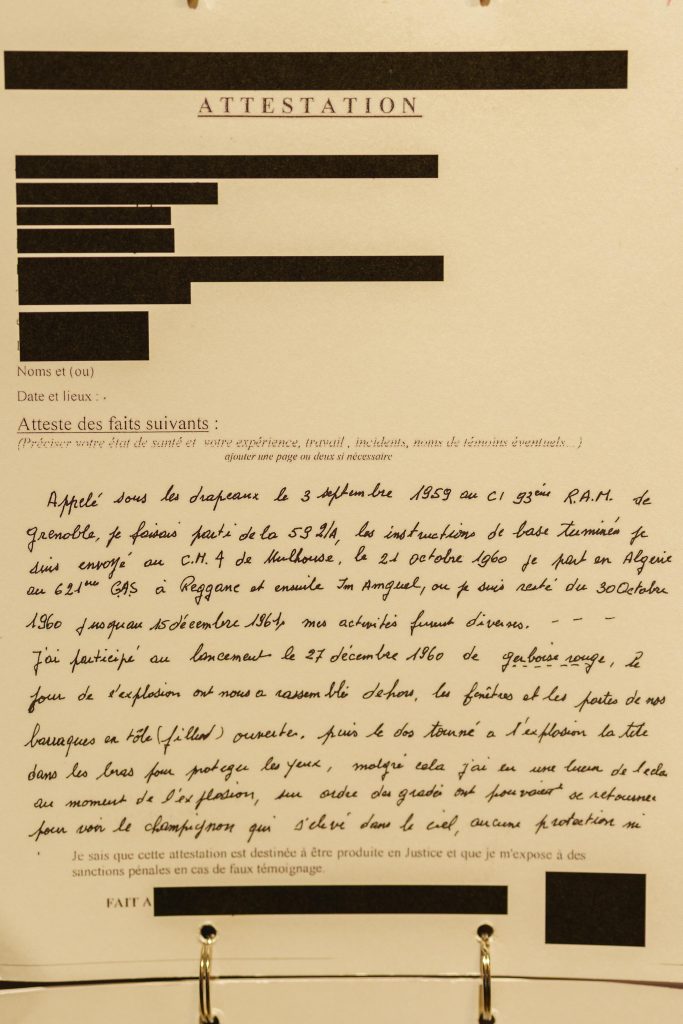 ATTESTATION
Noms et (ou)
Date et lieux :
Atteste des faits suivants :
(Préciser votre état de santé et votre expérience, travail , incidents, noms de témoins éventuels...)
ajouter une page ou deux si nécessaire
Appelé sous les drapeaux le 3 septembre 1959 au CI 93ème R.A.M. de
Grenoble, je faisais parti de la 59 2/A, les instructions de base terminés je
suis envoyé au C.M. 4 de Mulhouse, le 21 octobre 1960 je part en Algerie
au 621ème GAS à Reggane et ensuite Im Amguel, ou je suis resté du 30 Octobre
1960 jusquau 15 décembre 1961, mes activités furent diverses. - - -
J'ai participé au lancement le 27 décembre 1960 de gerboise rouge, le
jour de l'explosion ont nous a rassemblé dehors, les fenêtres et les portes de nos
barraques en tôle (fillod) ouvertes, puis le dos tourné a l'explosion la tête
dans les bras pour proteger les yeux, malgré cela j'ai eu une lueur de l'ecla
au moment de l'explosion, sur ordre des gradés ont pouvait se retourner
pour voir le champignon qui s'elevé dans le ciel, aucune protection ni
Je sais que cette attestation est destinée à être produite en Justice et que je m'expose à des
sanctions pénales en cas de faux témoignage.
FAIT A